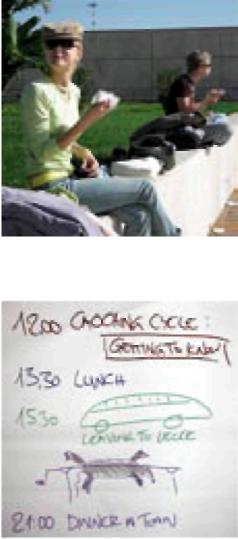 12:00 COOKING CYCLE:
GETTING TO KNOW
13:30 LUNCH
15:30
LEAVING TO LECCE
21:00 DINNER IN TOWN